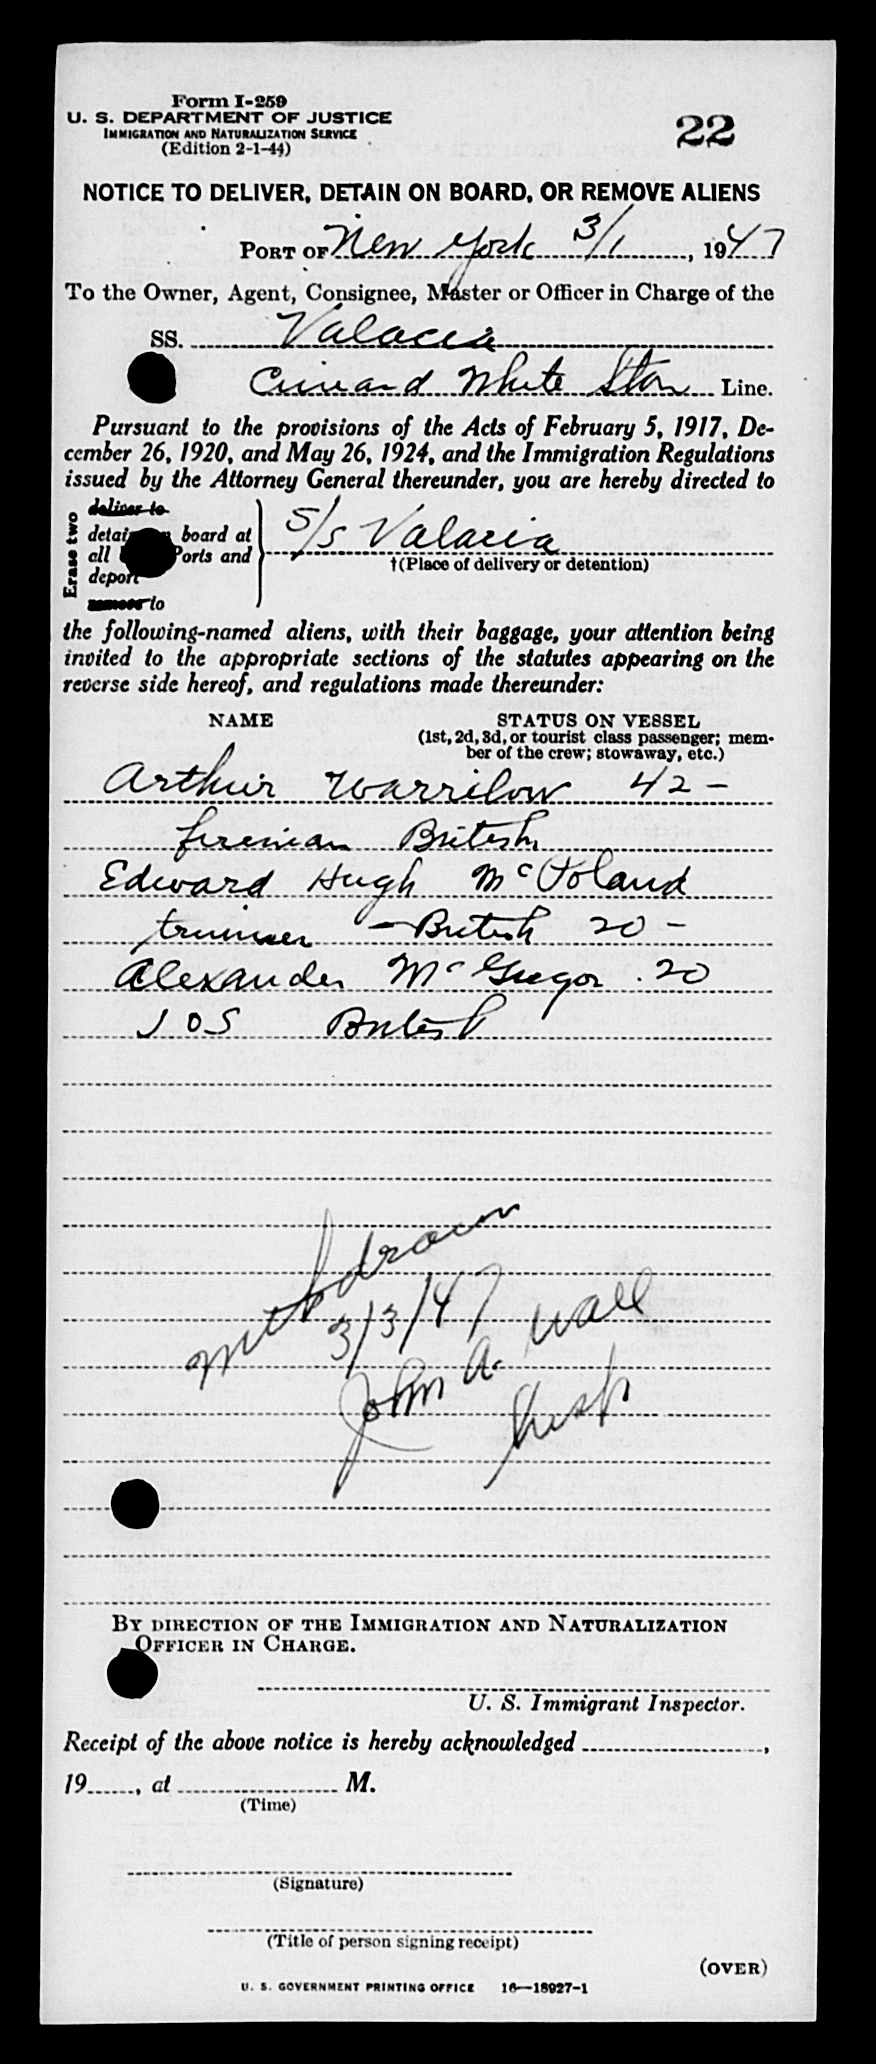 Form I-259
U. S. DEPARTMENT OF JUSTICE
IMMIGRATION AND NATURALIZATION SERVICE
(Edition 2-1-44)
22
NOTICE TO DELIVER, DETAIN ON BOARD, OR REMOVE ALIENS
PORT OF New York 3/1, 1947
To the Owner, Agent, Consignee, Master or Officer in Charge of the
SS. Valacia
Cunard White Star Line.
Pursuant to the provisions of the Acts of February 5, 1917, De-
cember 26, 1920, and May 26, 1924, and the Immigration Regulations
issued by the Attorney General thereunder, you are hereby directed to
Erase two
deliver to
detain board at
all Ports and
deport
remove to
S/S Valacia
†(Place of delivery or detention)
the following-named aliens, with their baggage, your attention being
invited to the appropriate sections of the statutes appearing on the
reverse side hereof, and regulations made thereunder:
NAME STATUS ON VESSEL
(1st, 2d, 3d, or tourist class passenger; mem-
ber of the crew; stowaway, etc.)
Arthur Warrilow 42 -
fireman British
Edward Hugh McPoland
trimmer - British 20 -
Alexander McGregor . 20
J O S British
Withdrawn
3/3/47
John A. Wall
Insp
BY DIRECTION OF THE IMMIGRATION AND NATURALIZATION
OFFICER IN CHARGE.
U. S. Immigrant Inspector.
Receipt of the above notice is hereby acknowledged ,
19 , at M.
(Time)
(Signature)
(Title of person signing receipt)
(OVER)
U. S. GOVERNMENT PRINTING OFFICE 16—18927-1